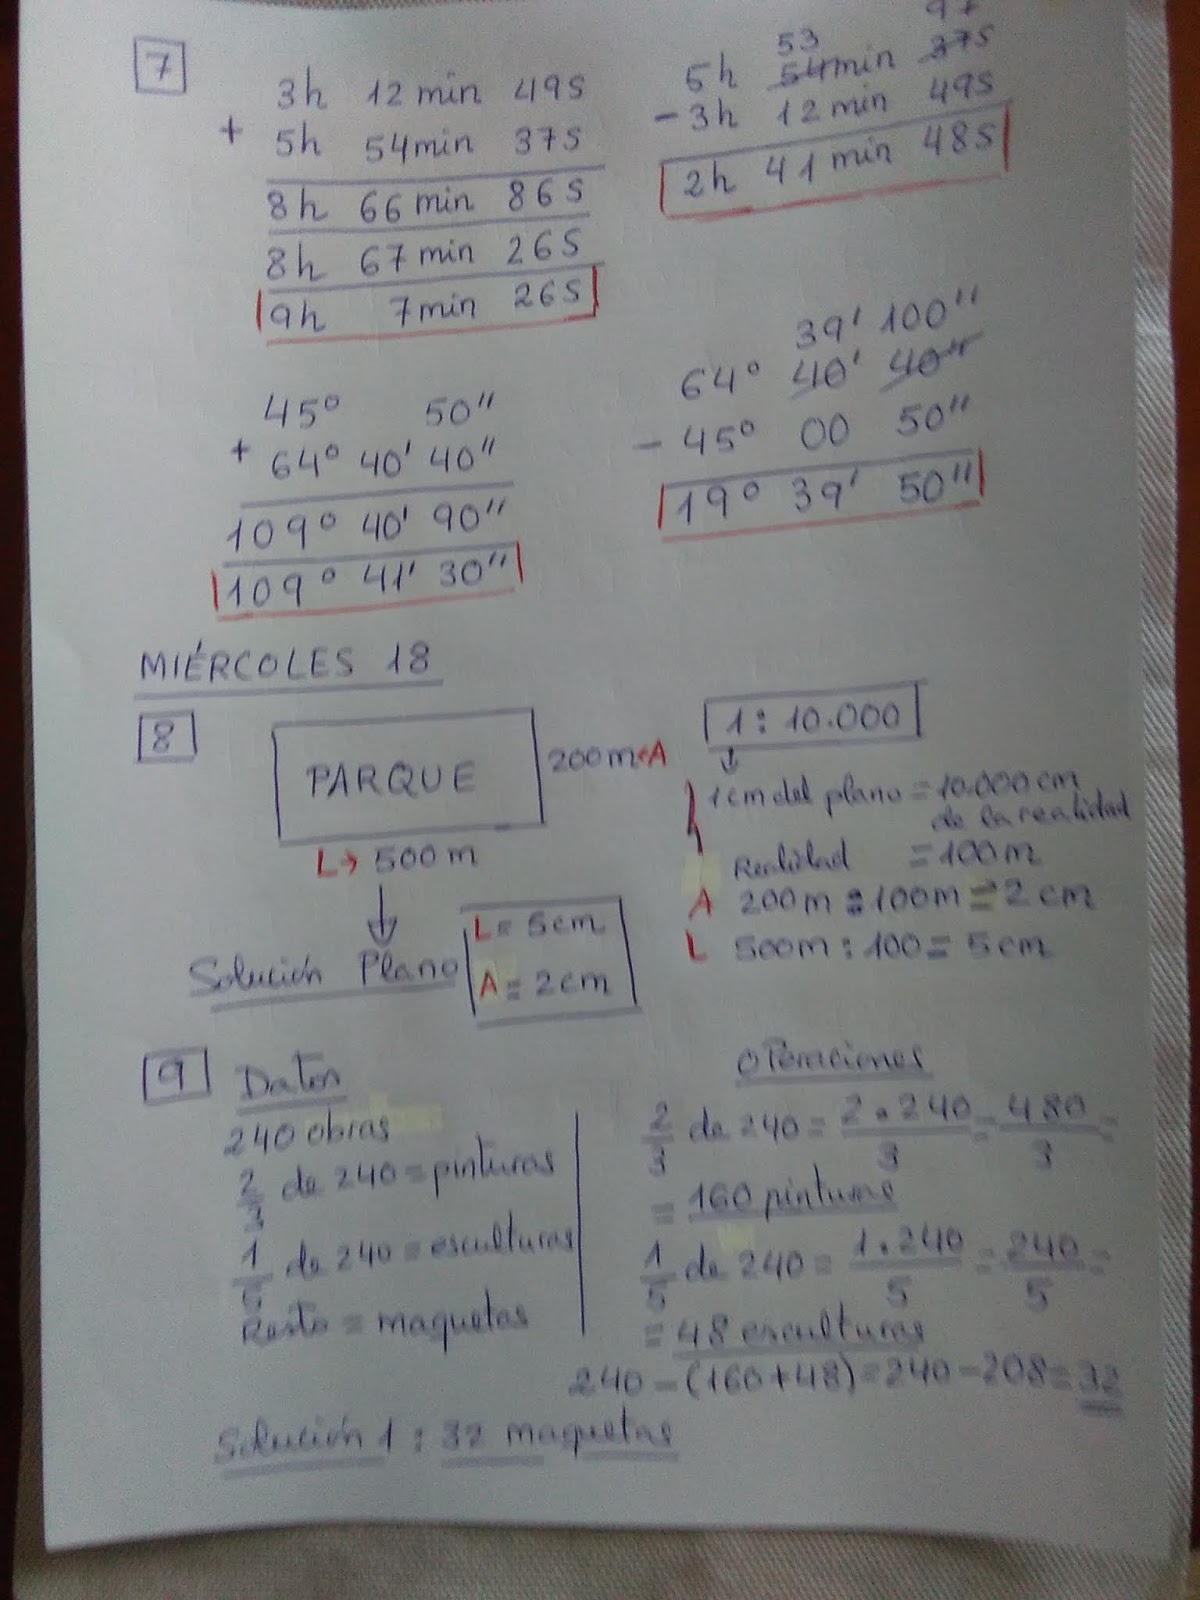 7
3h 12 min 49s
+ 5h 54min 37s
8h 66 min 86s
8h 67 min 26s
9h 7min 26s
97
53
5h 54min 37s
- 3h 12 min 49s
2h 41 min 48s
45° 50"
+ 64° 40' 40"
109° 40' 90"
109° 41' 30"
39' 100"
64° 40' 40"
- 45° 00 50"
19° 39' 50"
MIÉRCOLES 18
8
PARQUE
200m A
L→ 500 m
Solución Plano
L = 5cm
A = 2cm
1 : 10.000
1cm del plano = 10.000 cm
de la realidad
Realidad = 100m
A 200m : 100m = 2 cm
L 500m : 100 = 5 cm
9 Datos
240 obras
2/3 de 240 = pinturas
1/5 de 240 = esculturas
Resto = maquetas
Operaciones
2/3 de 240 = 2·240/3 = 480/3 =
= 160 pinturas
1/5 de 240 = 1·240/5 = 240/5 =
= 48 esculturas
240 - (160+48) = 240 - 208 = 32
Solución 1 : 32 maquetas